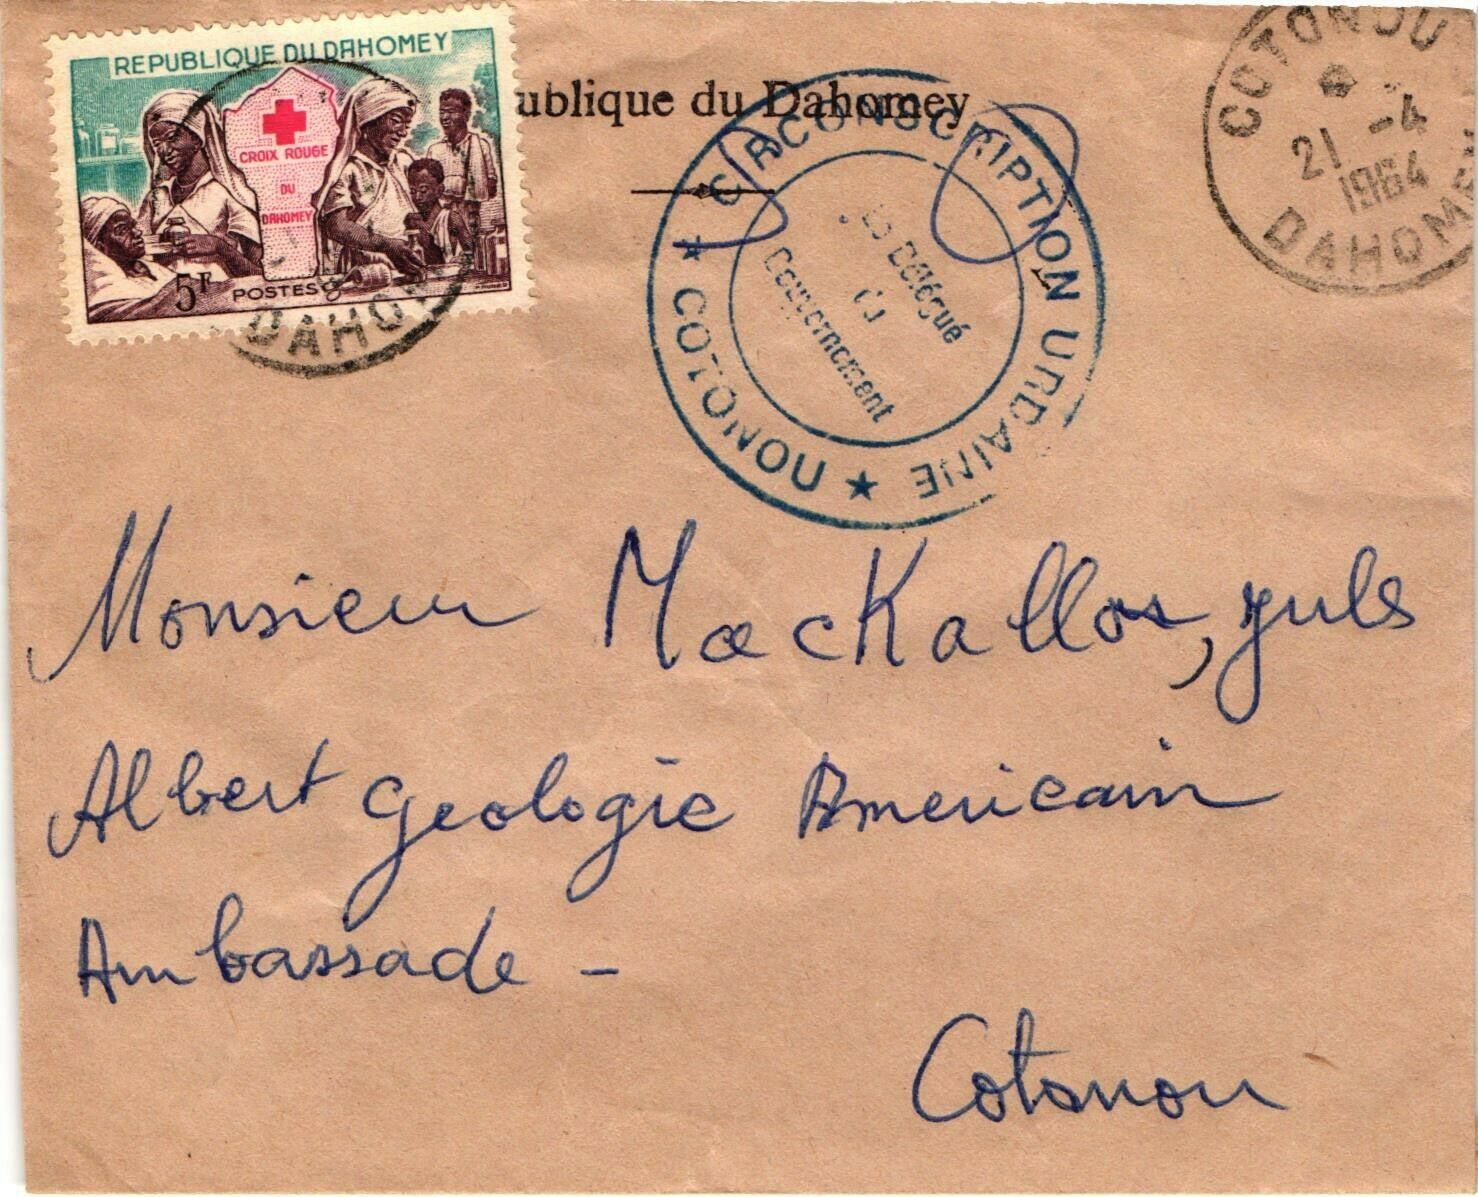 REPUBLIQUE DU DAHOMEY
CROIX ROUGE
DU
DAHOMEY
5F
POSTES
DAHO
ublique du Dahomey
★ CIRCONSCRIPTION URBAINE ★ COTONOU
Le Délégué
du
Gouvernement
COTONOU
21 -4
1964
DAHOME
Monsieur MacKallor, Jules
Albert Geologie Americain
Ambassade -
Cotonou